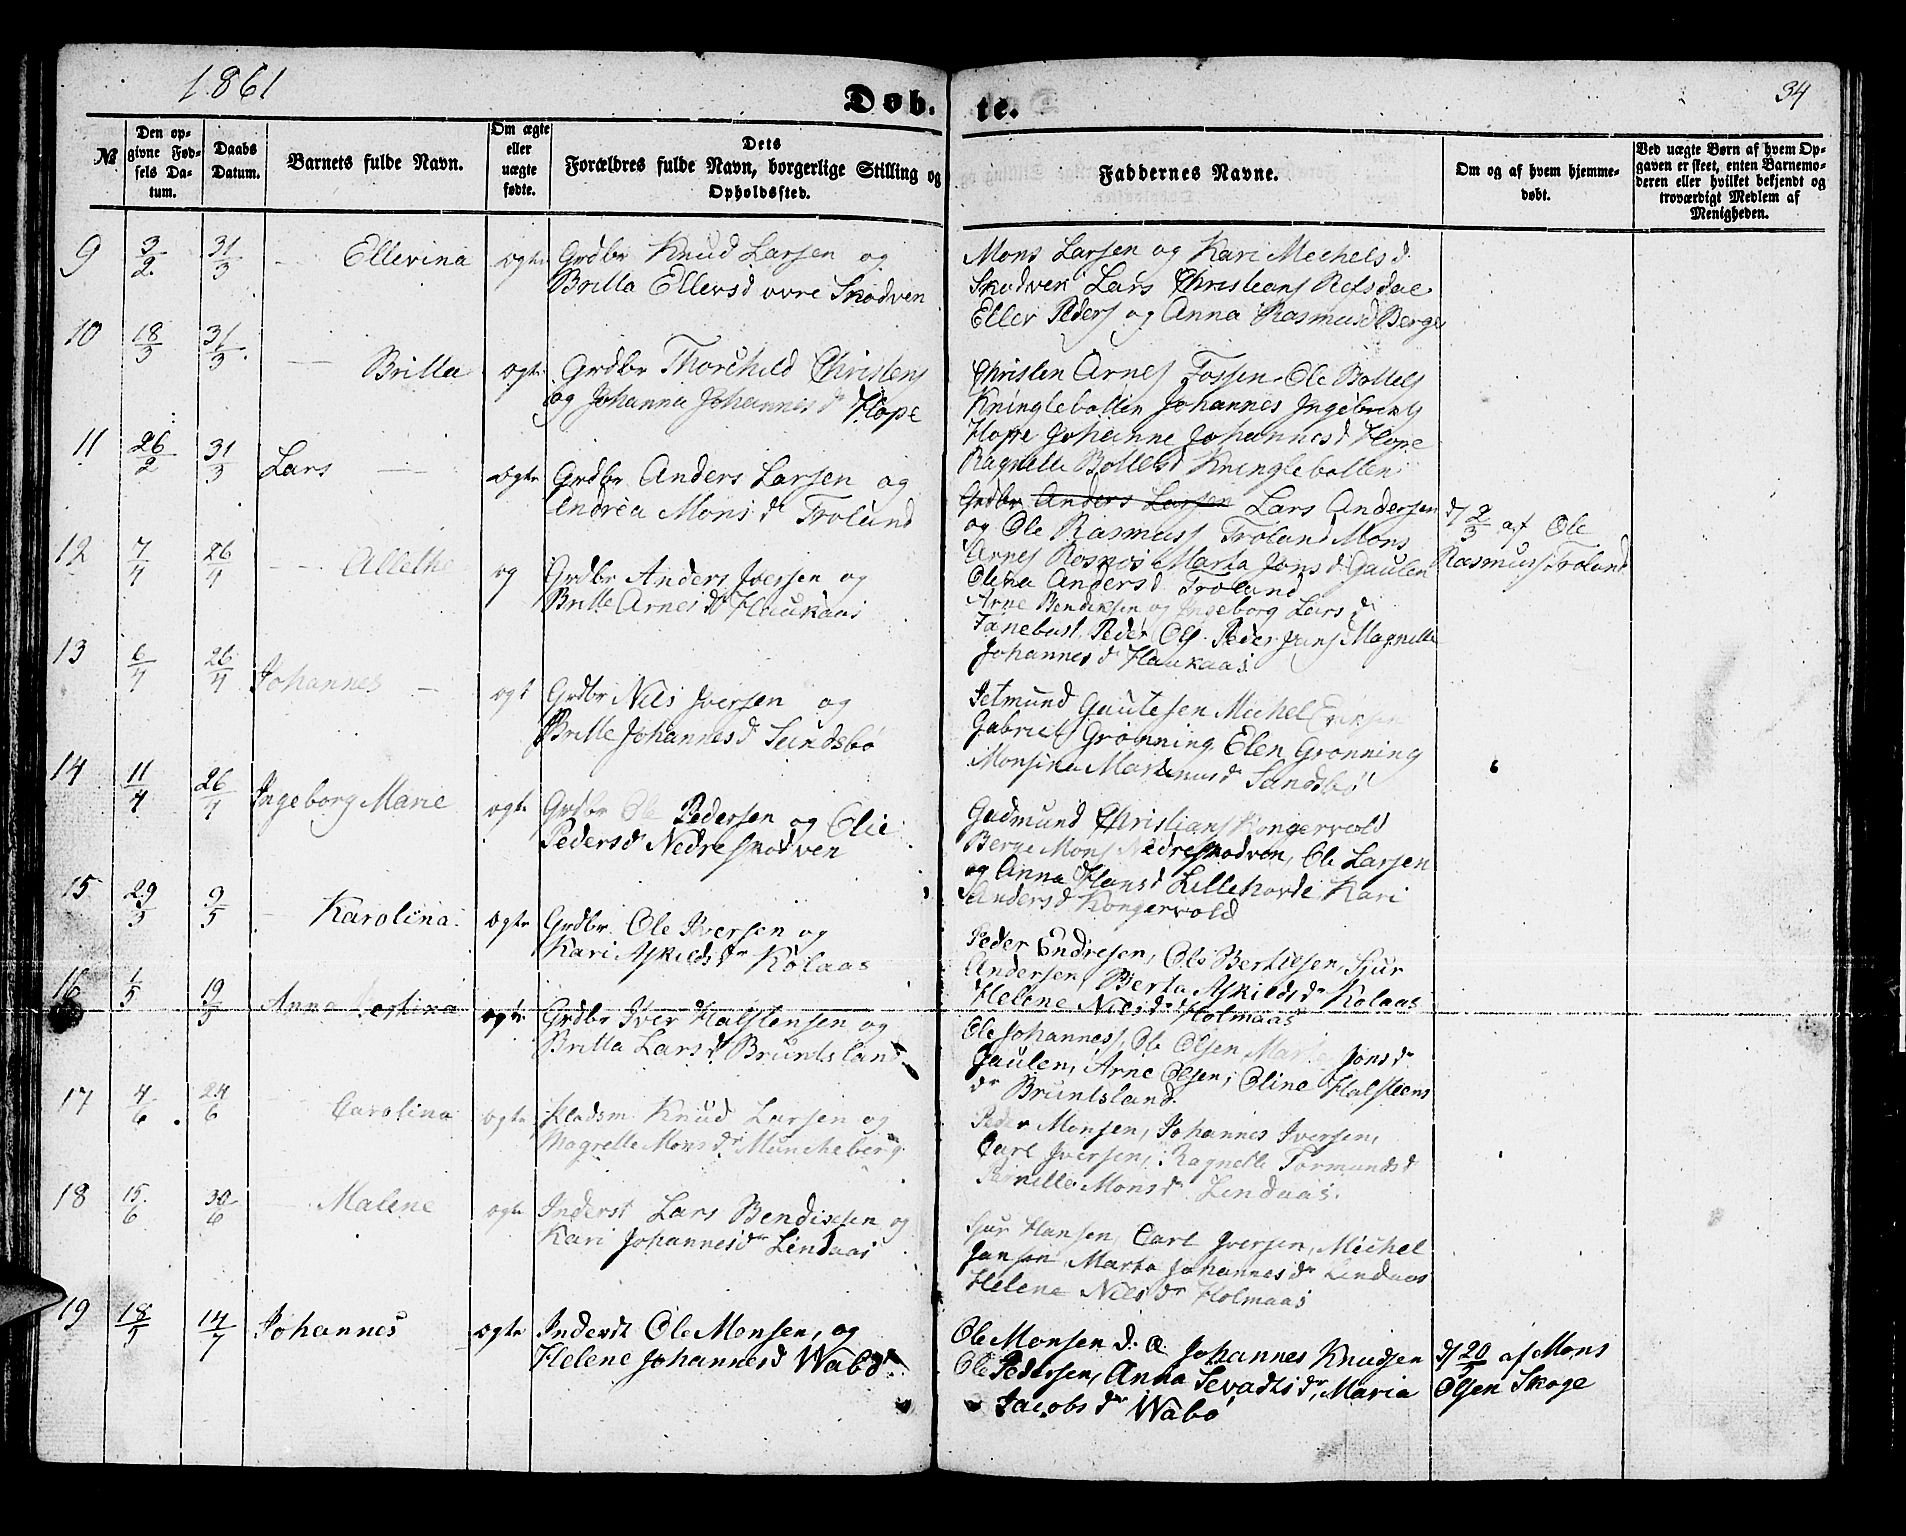 1861
Døb. te.
34
№
Den opgivne Fødsels Datum.
Daabs Datum.
Barnets fulde Navn.
Om ægte eller uægte fødte.
Dets Forældres fulde Navn, borgerlige Stilling og Opholdssted.
Faddernes Navne.
Om og af hvem hjemmedøbt.
Ved uægte Børn af hvem Opgaven er skeet, enten Barnemoderen eller hvilket bekjendt og troværdigt Medlem af Menigheden.
9 3/2 31/3 — Ellevina ægte Grdbr Knud Larsen og
Britta Ellevsd øvre Skodven
Mons Larsen og Kari Mechelsd
Skodven Lars Christians Refsdal
Ellev Peders og Anna Rasmusd Berge
10 18/3 31/3 — Britta ægte Grdbr Thorchild Christens
og Johanna Johannesd Hope
Christen Arnes Fossen Ole Bottels
Kninglebotten Johannes Ingebrigts
Hope Johanne Johannesd Hope
Ragnelle Bottelsd Kninglebotten
11 26/2 31/3 Lars — ægte Grdbr Anders Larsen og
Andrea Monsd Troland
Grdbr Anders Larsen Lars Andersen
og Ole Rasmuss Troland Mons
Arnes Rosnøs Marta Jonsd Gaulen
Olina Andersd Troland
d/ 2/3 af Ole
Rasmuss Troland
12 7/4 26/4 — Allethe æg Grdbr Anders Iversen og
Britte Arnesd Haukaas
Arne Bendiksen og Ingeborg Larsd
Tanebust Peder Ols Peder Jans Magnille
Johannesd Haukaas
13 6/4 26/4 Johannes — ægt Grdbr Nils Iversen og
Britte Johannesd Sundsbø
Jetmund Gautesen Michel
Gabriels Grønning Elen Grønning
Monsina Martinusdr Sandsbø
14 11/4 26/4 Ingeborg Marie ægte Grdbr Ole Pedersen og Olie
Pedersd Nedre Skodven
Gudmund Christians Kongervold
Berge Mons Nedre Skodven, Ole Larsen
og Anna Hansd Lillehovde Kari
Andersd Kongervold
15 29/3 9/5 — Karolina ægte Grdbr. Ole Iversen og
Kari Askildsdr Kolaas
Peder Endresen, Ole Bertelsen, Sjur
Andersen, Berta Askildsdr Kolaas
Helene Nilsdr Holmaas
16 1/5 19/5 Anna ægte Grdbr Iver Halstensen og
Britta Larsd Bruntsland
Ole Johanness, Ole Olsen Marta Jonsdr
Gaulen, Arne Olsen, Oline Halsteens
dr Bruntsland
17 4/6 24/6 — Carolina ægte Pladsm Knud Larsen og
Magrelle Monsdr Muncheberg
Peder Monsen, Johannes Iversen,
Carl Iversen, Ragnelle Tormundsd
Pernille Monsd Lindaas.
18 15/6 30/6 — Malene ægte Inderst Lars Bendixen og
Kari Johannesdr Lindaas
Sjur Hansen, Carl Iversen, Michel
Jansen Marta Johannesdr Lindaas
Helena Nilsdr Holmaas
19 18/5 14/7 Johannes ægte Inderst Ole Monsen, og
Helene Johannesd Wabø
Ole Monsen d. Æ. Johannes Knudsen
Ole Pedersen, Anna Sevadtsdr, Maria
Jacobsdr Wabø
d/ 20/5 af Mons
Olsen Skoge